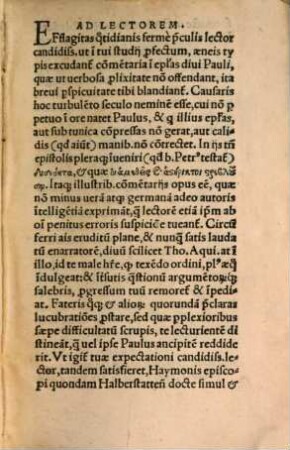 AD LECTOREM.
EFflagitas q̃tidianis fermè p̃culis lector
candidiss. ut ĩ tui studij ꝓfectum, æneis ty
pis excudant᷑ cõmẽtaria ĩ ep̃las diui Pauli,
quæ ut uerbosa ꝓlixitate nõ offendant, ita
breui ꝑspicuitate tibi blandiant᷑. Causaris
hoc turbulẽto seculo neminẽ esse, cui nõ ꝑ
petuo ĩ ore natet Paulus, & q̃ illius ep̃ras,
aut sub tunica cõpressas nõ gerat, aut cali
dis (qd̃ aiũt) manib. nõ cõtrectet. In ijs tñ
epistolis pleraq̃ ĩueniri (qd̃ b. Petrꝰ testat᷑)
& quæ
Itaq̃ illustrib. cõmẽtarijs opus eẽ, quæ
non minus uerã atq̃ germanã adeo autoris
ĩtelligẽtiã exprimãt, q̃ lectorẽ etiã ip̃m ab
oĩ penitus erroris suspiciõe tueant᷑. Circũ
ferri ais eruditũ planẽ, & nunq̃ satis lauda
tũ enarratorẽ, diuũ scilicet Tho. Aqui. at ĩ
illo, id te male hr̃e, q̃ texẽdo ordini, pl⁹æq̃
ĩdulgeat: & ĩfsutis q̃stionũ argumẽtoꝝq̃
salebris, ꝓgressum tuũ remoret᷑ & ĩpedi=
at. Fateris q̃q̃ & alioꝝ quorundã p̃claras
lucubratiões ꝓstare, sed quæ ꝑplexioribus
sæpe difficultatũ scrupis, te lecturientẽ di
stineãt, q̃ uel ipse Paulus ancipitẽ reddide
rit. Vt igit᷑ tuæ expectationi candidiss. le=
ctor, tandem satisfieret, Haymonis episco
pi quondam Halberstatteñ docte simul &